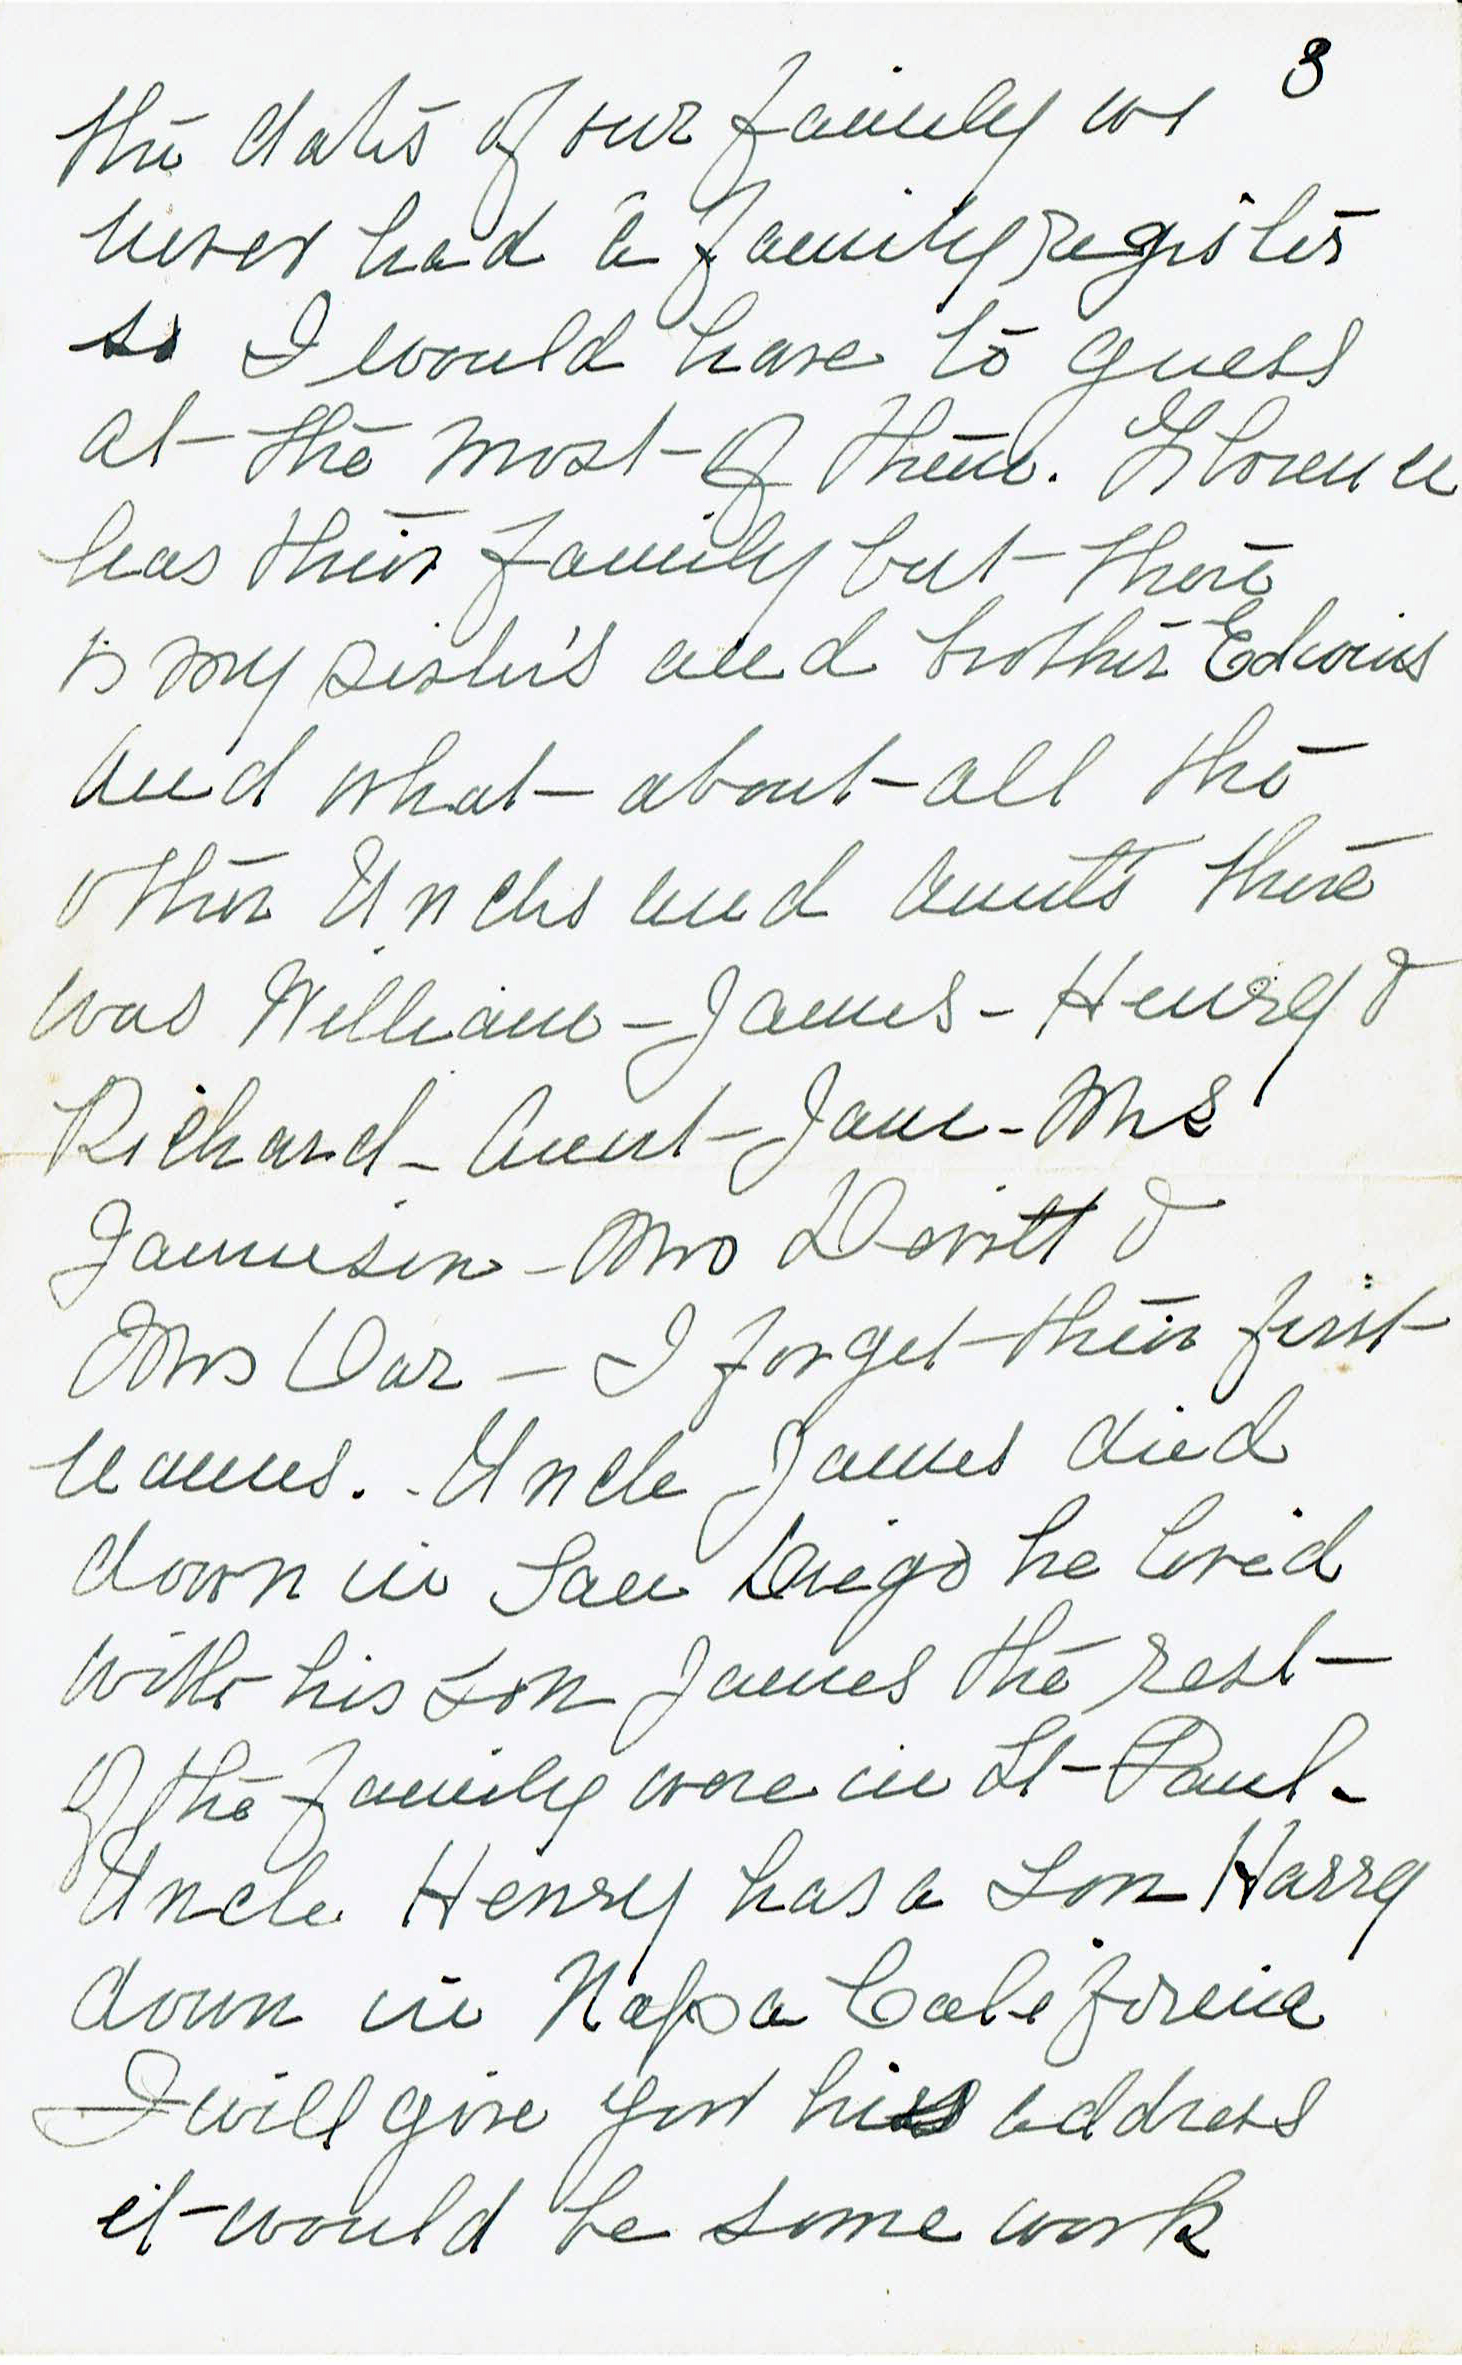 3
the dates of our family we
never had a family register
so I would have to guess
at the most of them. Florence
has their family but there
is my sister's and brother Edwins
and what about all the
other Uncles and aunts there
was William - James - Henry &
Richard - Aunt - Jane - Mrs
Jamieson - Mrs Devitt &
Mrs - I forget their first
names. Uncle James died
down in San Diego he lived
with his son James the rest
of the family were in St-Paul -
Uncle Henry has a son Harry
down in Napa California
I will give you his address
it would be some work